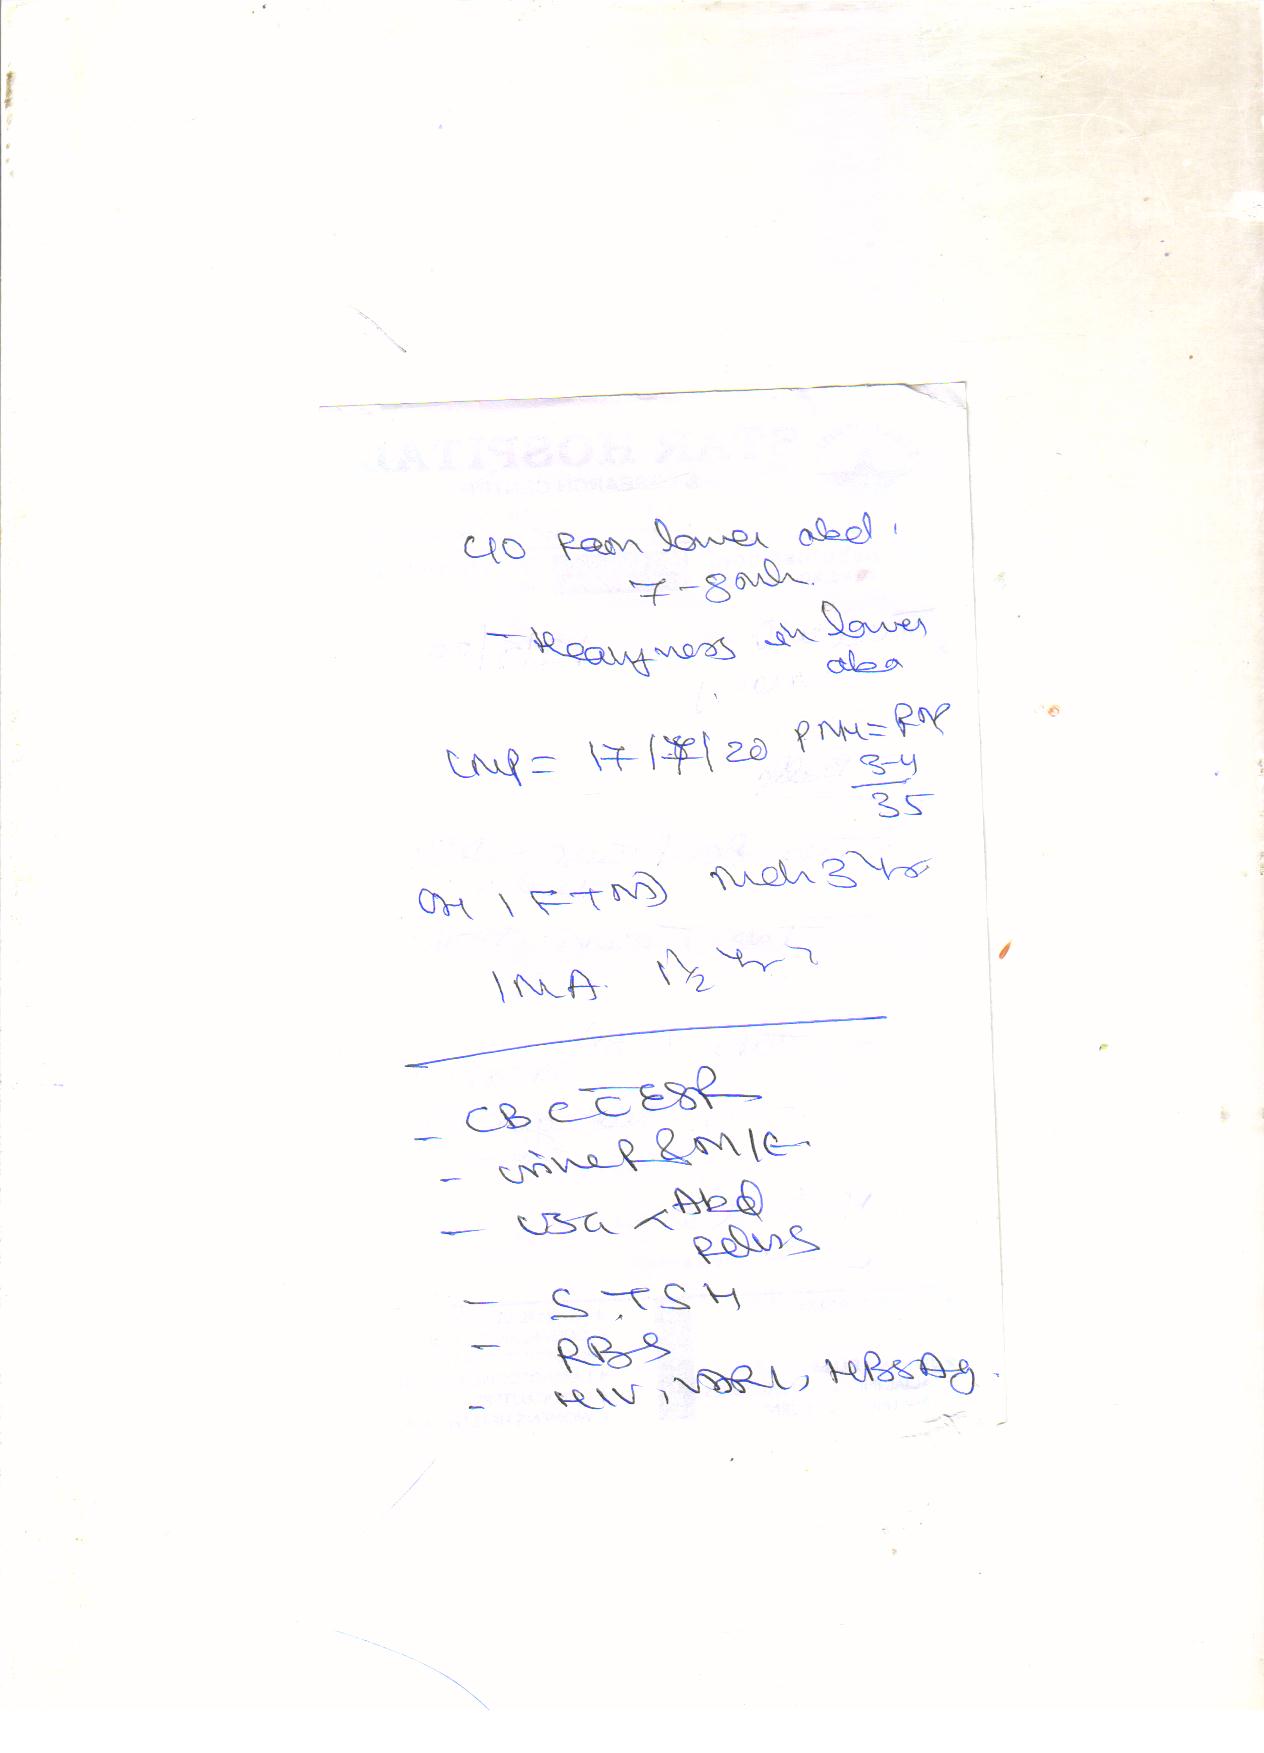 C/O Pain lower abd.
7-8 mth.
- Heavyness in lower
abd
LMP = 17/7/20 PMH = RN
3-4
35
OH 1 FTND Mch 3 Yr
1 MA. 1½ Yr
- CBC C̅ ESR
- Urine R & M/E
- USG < Abd
Pelvis
- S. TSH
- RBS
- HIV, VDRL, HBSAg.